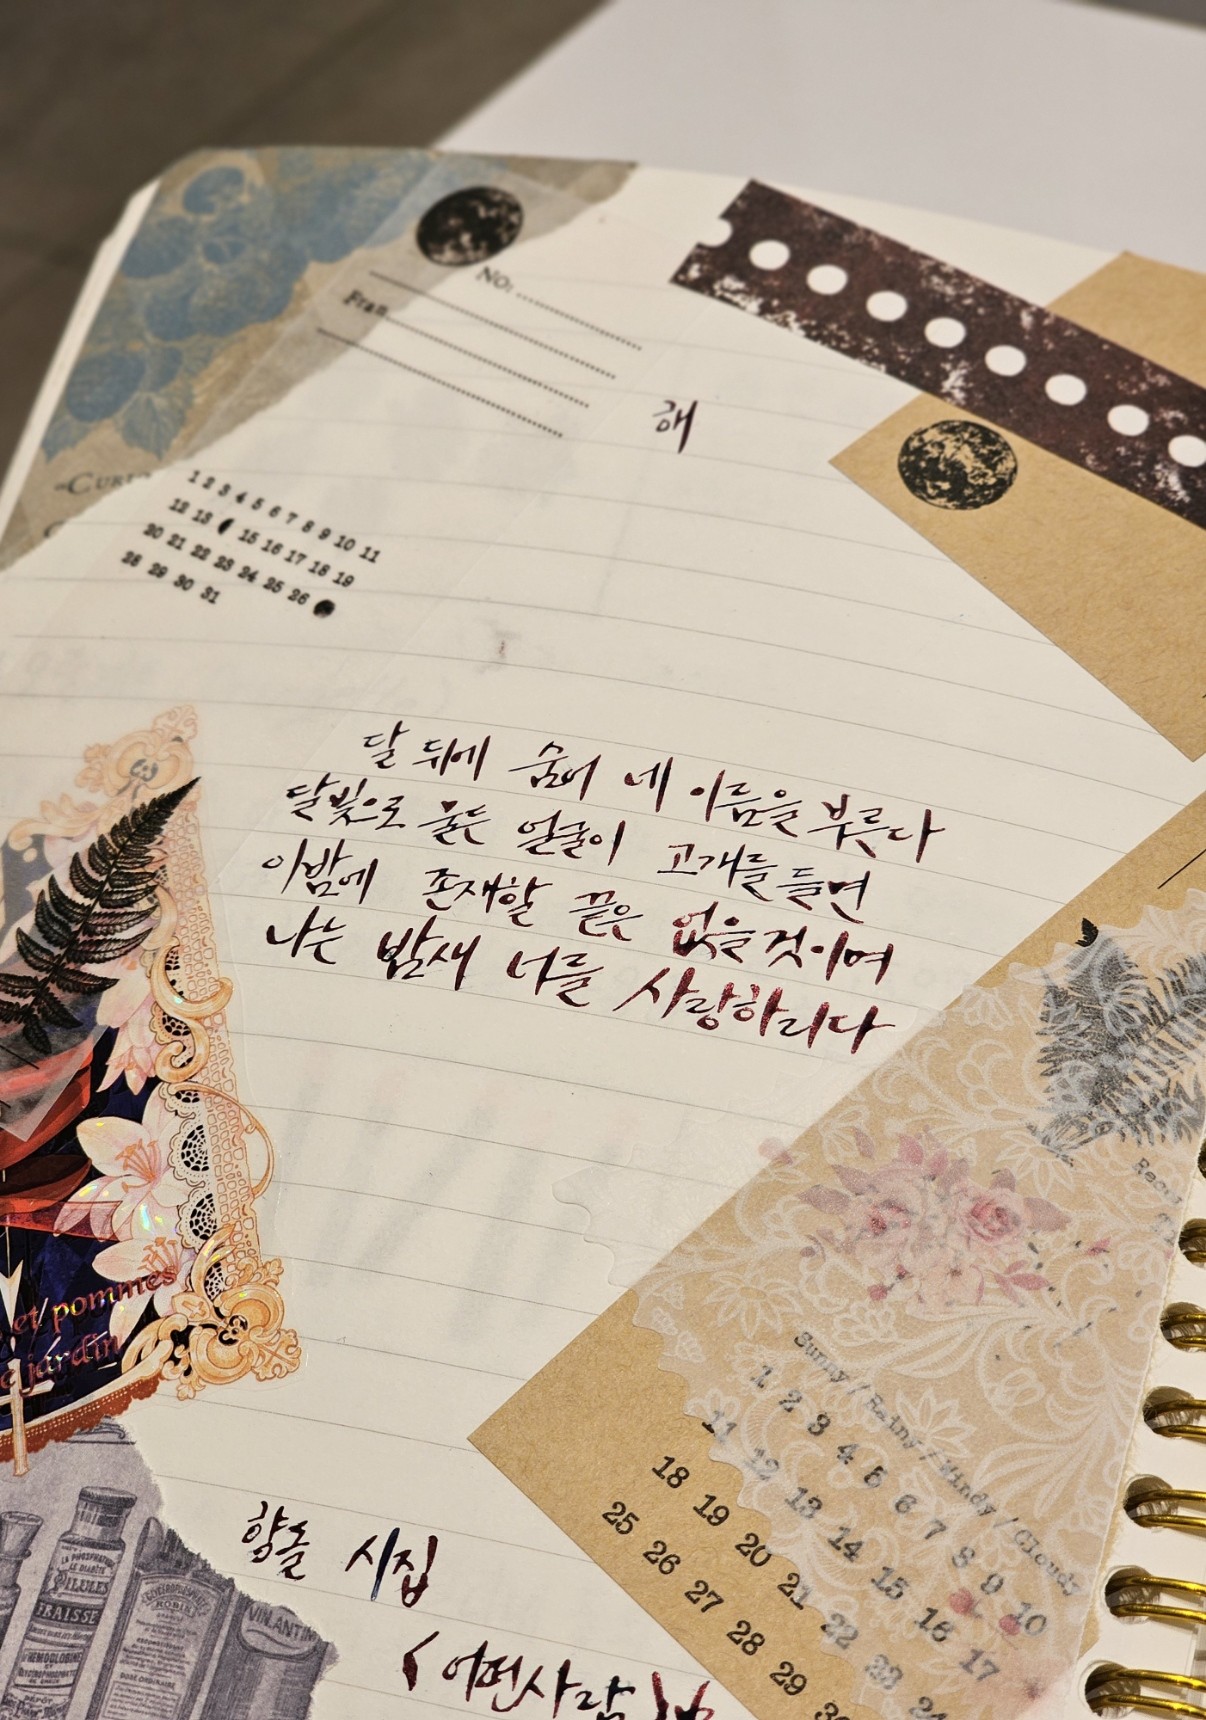 NO:
해
1 2 3 4 5 6 7 8 9 10 11
12 13 15 16 17 18 19
20 21 22 23 24 25 26
28 29 30 31
달 뒤에 숨어 네 이름을 부른다
달빛으로 물든 얼굴이 고개를 들면
이 밤에 존재할 끝은 없을 것이며
나는 밤새 너를 사랑하리다
et pommes
jardin
Sunny / Rainy / Windy / Cloudy
1 2 3 4 5 6 7 8 9 10
11 12 13 14 15 16 17
18 19 20 21 22 23 24
25 26 27 28 29 30
향돌 시집
LA PHOSPHATINE
PILULES
FRAISSE
HEMOGLOBINE
ROBIN
VIN.ANTIN
< 어떤 사람